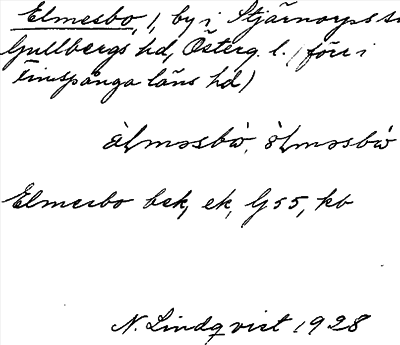 Elmesbo, 1, by i Stjärnorps sn
Gullbergs hd, Österg. l. (förr i
Finspånga läns hd)
Elmesbo bek, ek, G 55, kb
N. Lindqvist 1928